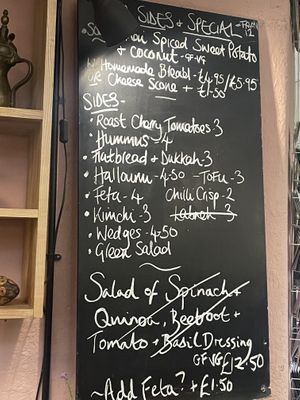 SIDES + SPECIAL - FROM 12
Spiced Sweet Potato
+ Coconut - GF-VG
Homemade Bread - £4.95/£5.95
OR Cheese Scone + £1.50
SIDES -
• Roast Cherry Tomatoes - 3
• Hummus - 4
• Flatbread + Dukkah - 3
• Halloumi - 4.50 - TOFU - 3
• Feta - 4 Chilli Crisp - 2
• Kimchi - 3 Labneh 3
• Wedges - 4.50
• Green Salad
~
Salad of Spinach +
Quinoa, Beetroot +
Tomato + Basil Dressing
GF VG £12.50
~ Add Feta? + £1.50